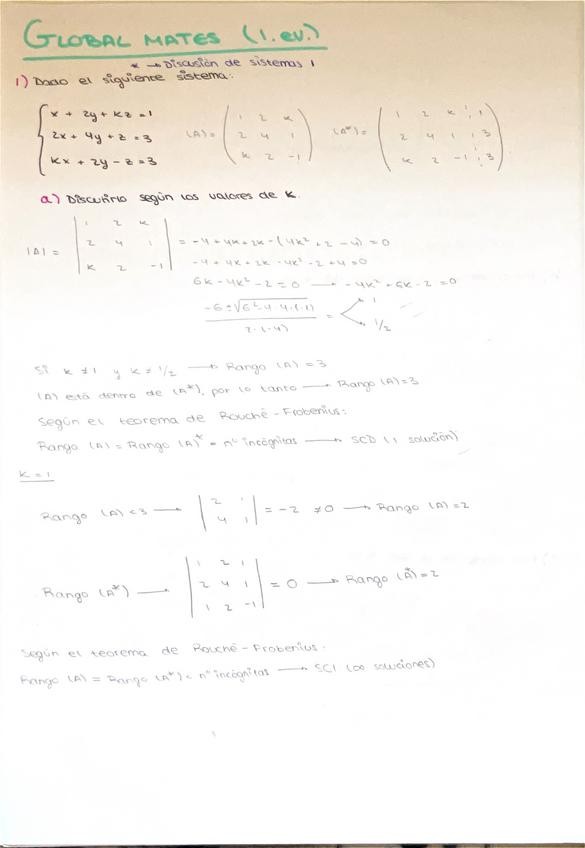 GLOBAL MATES (1.ev.)
* → Discusión de sistemas 1
1) Dado el siguiente sistema:
x + 2y + kz = 1
2x + 4y + z = 3
kx + 2y - z = 3
(A) = ( 1 2 k
2 4 1
k 2 -1 )
(A*) = ( 1 2 k ¦ 1
2 4 1 ¦ 3
k 2 -1 ¦ 3 )
a) Discutirlo según los valores de k.
|A| = | 1 2 k
2 4 1
k 2 -1 | = -4 + 4k + 2k - (4k² + 2 - 4) = 0
-4 + 4k + 2k - 4k² - 2 + 4 = 0
6k - 4k² - 2 = 0 → -4k² + 6k - 2 = 0
-6 ± √6² - 4·4·(-2) / 2·(-4) = < 1
1/2
Si k ≠ 1 y k ≠ 1/2 → Rango (A) = 3
(A) está dentro de (A*), por lo tanto → Rango (A) = 3
Según el teorema de Rouché-Frobenius:
Rango (A) = Rango (A)* = nº incógnitas → SCD (1 solución)
K = 1
Rango (A) < 3 → | 2 1
4 1 | = -2 ≠ 0 → Rango (A) = 2
Rango (A*) → | 1 2 1
2 4 1
1 2 -1 | = 0 → Rango (A*) = 2
Según el teorema de Rouché-Frobenius:
Rango (A) = Rango (A*) < nº incógnitas → SCI (∞ soluciones)